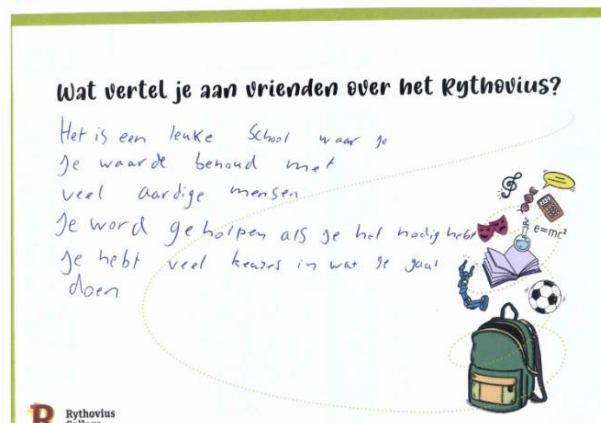 Wat vertel je aan vrienden over het Rythovius?
Het is een leuke School waar je
Je waarde behoud met
veel aardige mensen
Je word geholpen als je het nodig hebt
Je hebt veel keuzes in wat je gaat
doen
e=mc²
R Rythovius
College